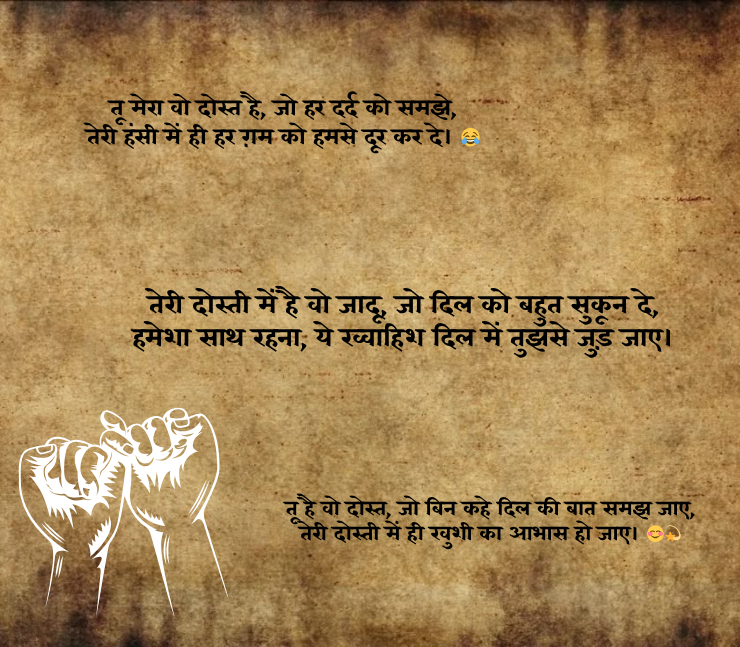 तू मेरा वो दोस्त है, जो हर दर्द को समझे,
तेरी हंसी में ही हर ग़म को हमसे दूर कर दे। 😂
तेरी दोस्ती में है वो जादू, जो दिल को बहुत सुकून दे,
हमेशा साथ रहना, ये ख्वाहिश दिल में तुझसे जुड़ जाए।
तू है वो दोस्त, जो बिन कहे दिल की बात समझ जाए,
तेरी दोस्ती में ही खुशी का आभास हो जाए। 😊💫